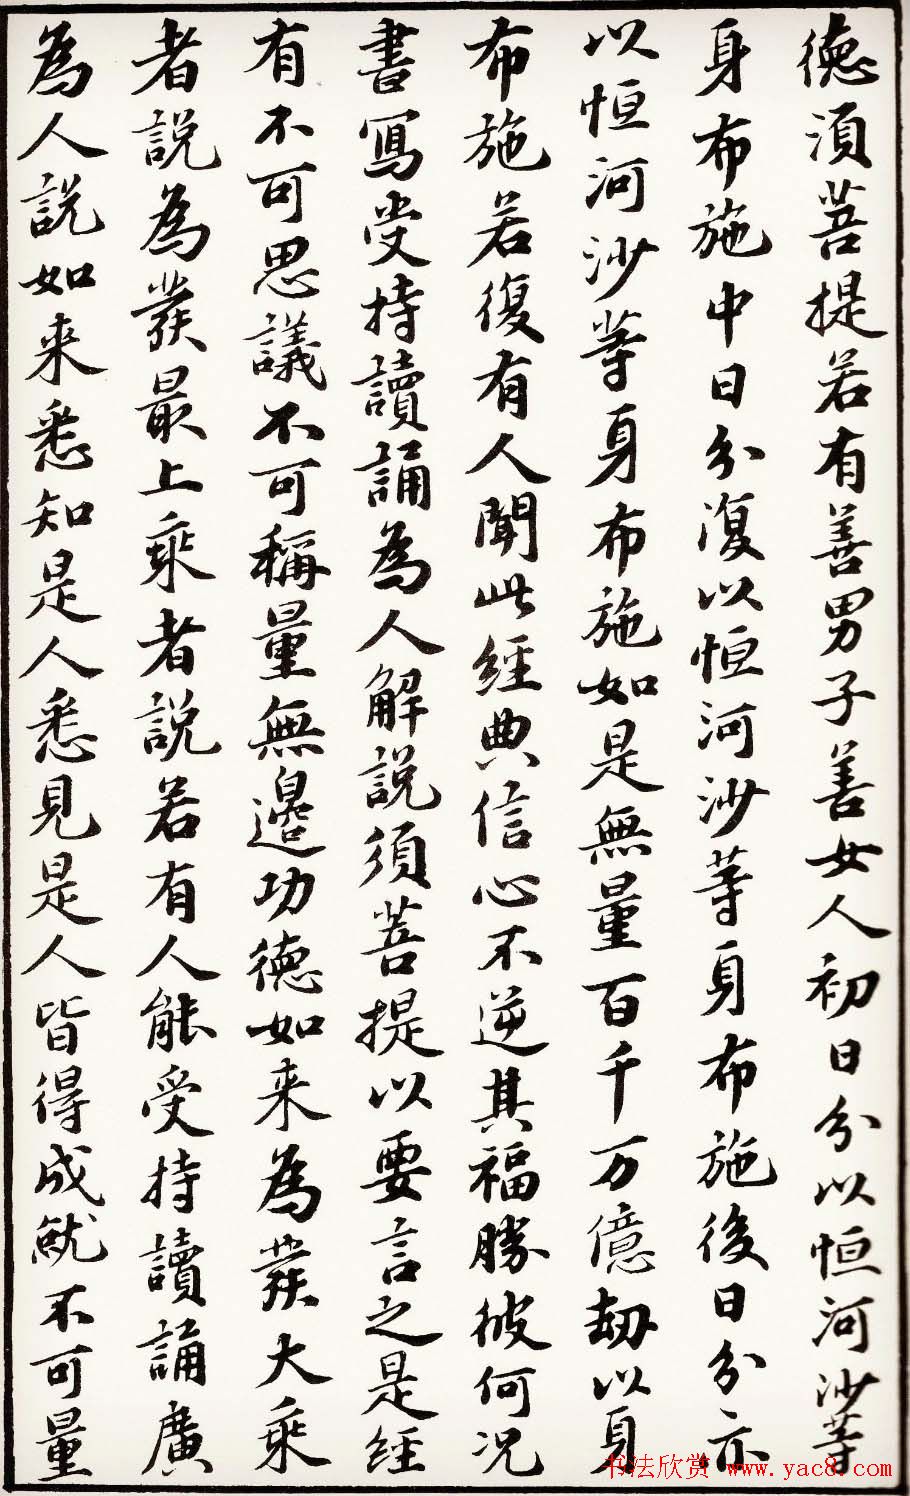 德須菩提若有善男子善女人初日分以恒河沙等
身布施中日分復以恒河沙等身布施後日分亦
以恒河沙等身布施如是無量百千万億劫以身
布施若復有人聞此經典信心不逆其福勝彼何况
書寫受持讀誦為人解說須菩提以要言之是經
有不可思議不可稱量無邊功德如来為發大乘
者說為發最上乘者說若有人能受持讀誦廣
為人說如来悉知是人悉見是人皆得成就不可量
书法欣赏 www.yac8.com